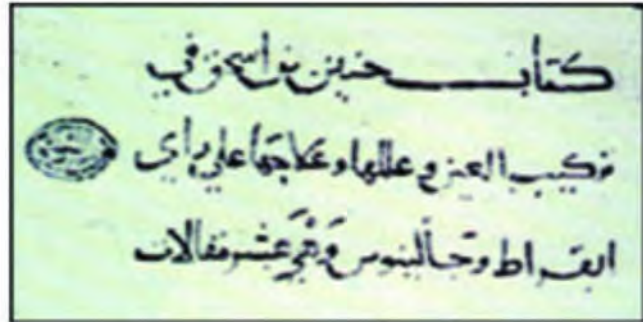 كتاب حنين بن اسحق في
تركيب العين وعللها وعلاجها علي راي
ابقراط وجالينوس وهي عشر مقالات